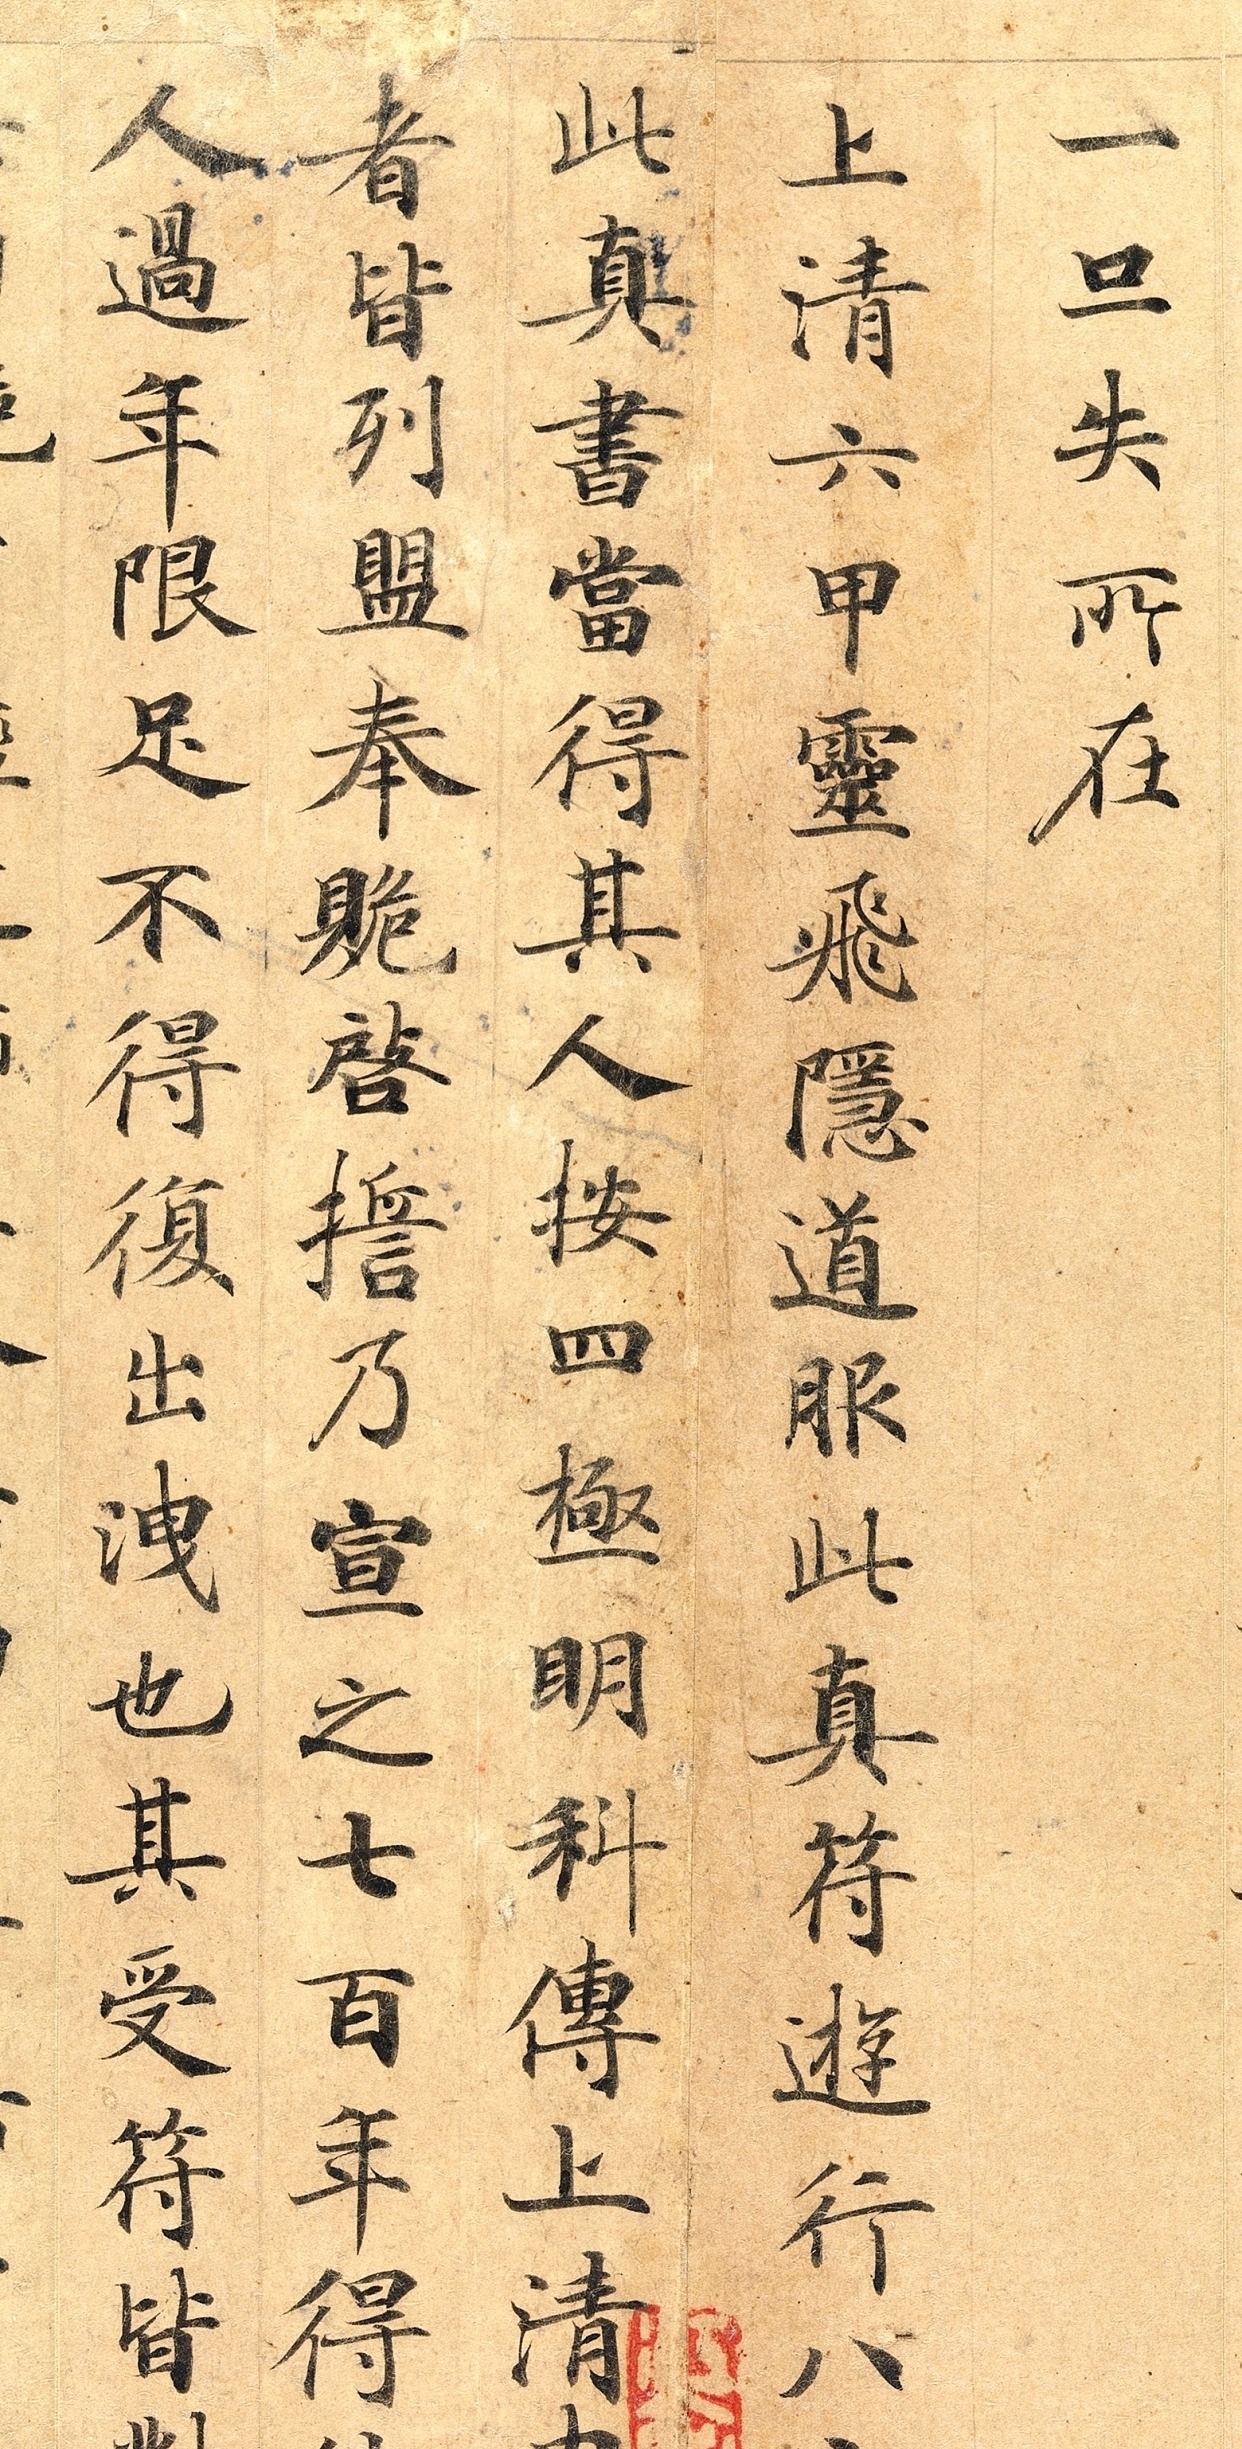 一旦失所在
上清六甲靈飛隱道服此真符遊行八
此真書當得其人按四極明科傳上清
者皆列盟奉貺啓擔乃宣之七百年得
人過年限足不得復出洩也其受符皆對